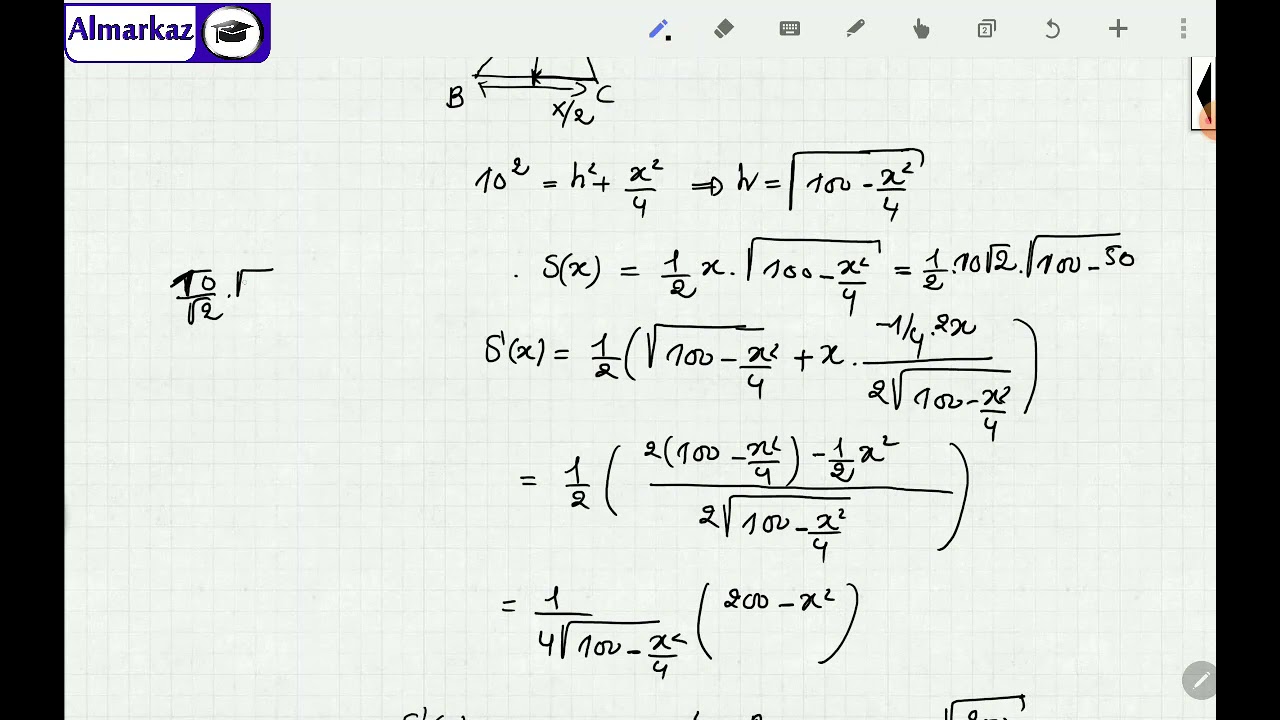 Almarkaz
B C
x/2
10² = h² + x²/4 ⇒ h = √(100 - x²/4)
. S(x) = 1/2 x . √(100 - x²/4) = 1/2 . 10√2 . √(100 - 50)
10/√2 . √
S'(x) = 1/2 ( √(100 - x²/4) + x . (-1/4 . 2x)/(2√(100 - x²/4)) )
= 1/2 ( (2(100 - x²/4) - 1/2 x²)/(2√(100 - x²/4)) )
= 1/(4√(100 - x²/4)) ( 200 - x² )